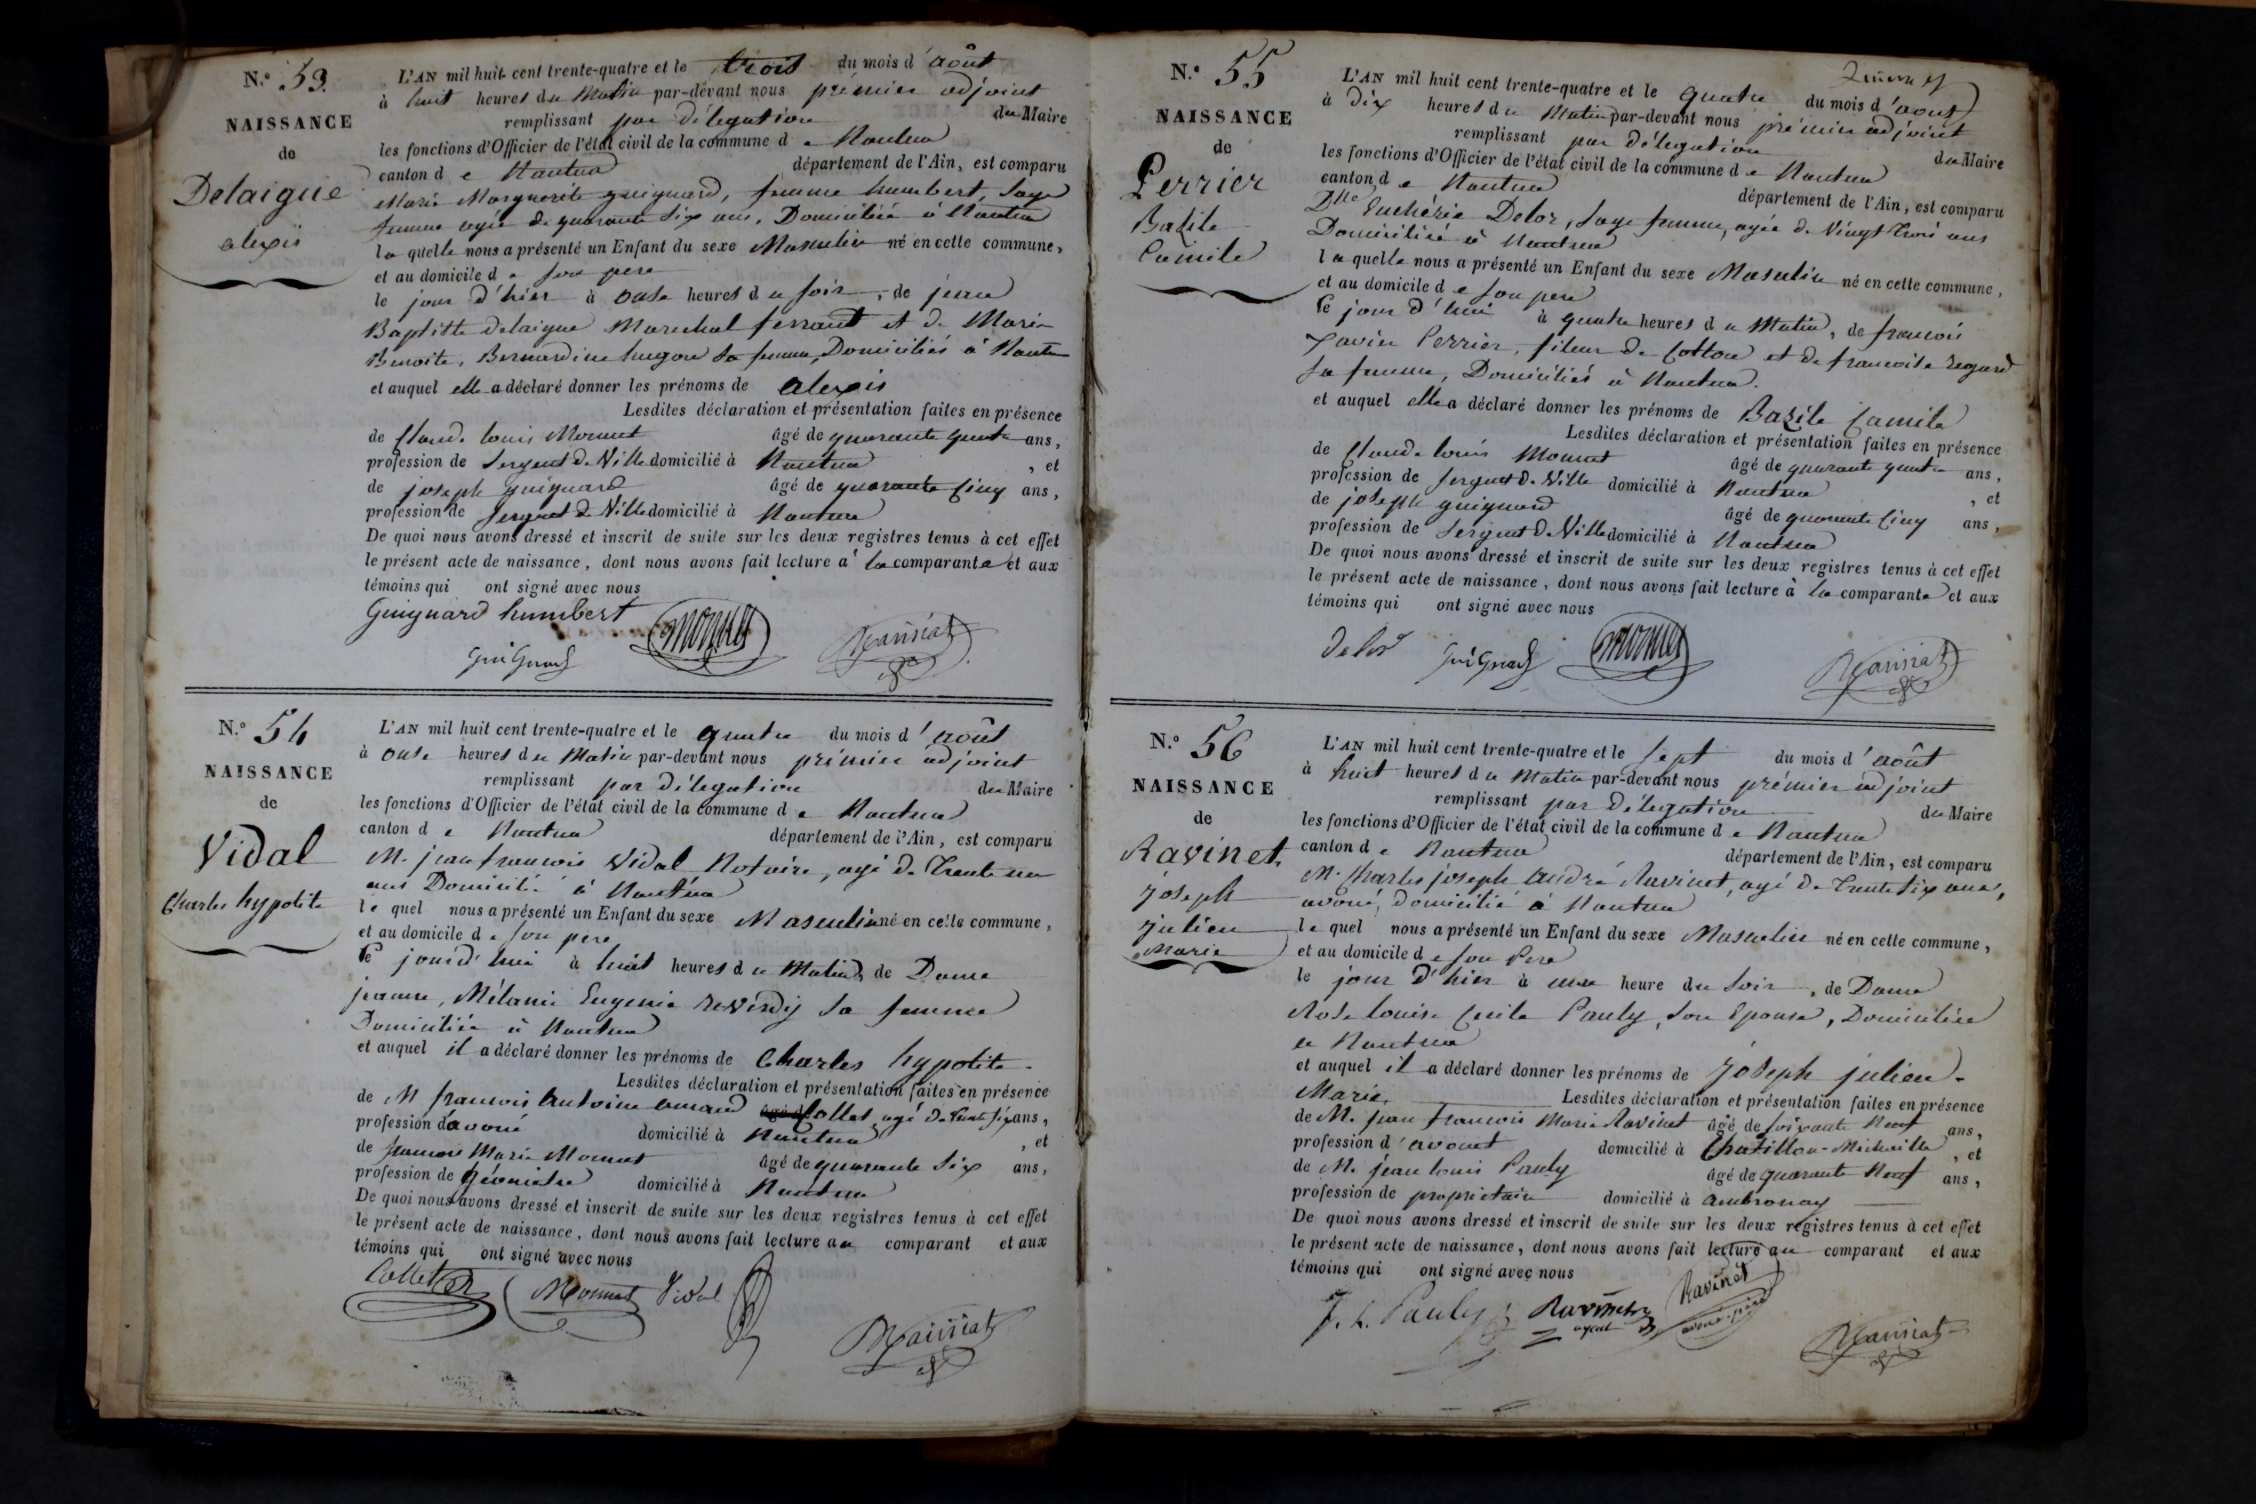 N.º 53.
NAISSANCE
de
Delaigue
alexis
L'AN mil huit cent trente-quatre et le trois du mois d'août
à huit heures du Matin par-devant nous prémier adjoint
remplissant par délégation du Maire
les fonctions d'Officier de l'état civil de la commune de Nantua
canton de Nantua département de l'Ain, est comparu
Marie Marguerite guignard, femme humbert, Sage
femme agée de quarante Six ans, Domiciliée à Nantua
laquelle nous a présenté un Enfant du sexe Masculin né en cette commune,
et au domicile de son pere
le jour d'hier à onze heures du soir, de jean
Baptiste delaigue Marechal ferrant et de Marie
Benoite, Bernardine hugon sa femme, Domiciliés à Nantua
et auquel elle a déclaré donner les prénoms de alexis
Lesdites déclaration et présentation faites en présence
de Claude louis Monnet âgé de quarante quatre ans,
profession de Sergent de Ville domicilié à Nantua, et
de joseph guignard âgé de quarante Cinq ans,
profession de Sergent de Ville domicilié à Nantua
De quoi nous avons dressé et inscrit de suite sur les deux registres tenus à cet effet
le présent acte de naissance, dont nous avons fait lecture à la comparante et aux
témoins qui ont signé avec nous
Guignard humbert
monnet
Guignard
N.º 54
NAISSANCE
de
Vidal
Charles hypolite
L'AN mil huit cent trente-quatre et le quatre du mois d'août
à onze heures du Matin par-devant nous prémier adjoint
remplissant par délégation du Maire
les fonctions d'Officier de l'état civil de la commune de Nantua
canton de Nantua département de l'Ain, est comparu
M. jean francois Vidal Notaire, agé de Trente un
ans Domicilié à Nantua
lequel nous a présenté un Enfant du sexe Masculin né en cette commune,
et au domicile de son pere
Ce jourd'hui à huit heures du Matin, de Dame
jeanne, Mélanie Eugenie reverdy sa femme
Domiciliée à Nantua
et auquel il a déclaré donner les prénoms de Charles hypolite
Lesdites déclaration et présentation faites en présence
de M francois Antoine amand Collet agé de Trente Six ans,
profession d'avoué domicilié à Nantua, et
de francois Marie Monnet âgé de quarante Six ans,
profession de Géomètre domicilié à Nantua
De quoi nous avons dressé et inscrit de suite sur les deux registres tenus à cet effet
le présent acte de naissance, dont nous avons fait lecture au comparant et aux
témoins qui ont signé avec nous
Collet
Monnet Vidal
N.º 55
NAISSANCE
de
Perrier
Bazile
Camile
L'AN mil huit cent trente-quatre et le quatre du mois d'aout
à Dix heures du Matin par-devant nous prémier adjoint
remplissant par délégation du Maire
les fonctions d'Officier de l'état civil de la commune de Nantua
canton de Nantua département de l'Ain, est comparu
Dlle Euchérie Delor, Sage femme, agée de Vingt Trois ans
Domiciliée à Nantua
laquelle nous a présenté un Enfant du sexe Masculin né en cette commune,
et au domicile de son pere
Ce jour d'hui à quatre heures du Matin, de francois
Xavier Perrier, fileur de Cotton et de francoise regard
sa femme, Domiciliés à Nantua.
et auquel elle a déclaré donner les prénoms de Bazile Camile
Lesdites déclaration et présentation faites en présence
de Claude louis Monnet âgé de quarante quatre ans,
profession de Sergent de Ville domicilié à Nantua, et
de joseph guignard âgé de quarante Cinq ans,
profession de Sergent de Ville domicilié à Nantua
De quoi nous avons dressé et inscrit de suite sur les deux registres tenus à cet effet
le présent acte de naissance, dont nous avons fait lecture à la comparante et aux
témoins qui ont signé avec nous
Delor Guignard monnet
N.º 56
NAISSANCE
de
Ravinet,
joseph
julien
Marie
L'AN mil huit cent trente-quatre et le sept du mois d'août
à huit heures du Matin par-devant nous prémier adjoint
remplissant par délégation du Maire
les fonctions d'Officier de l'état civil de la commune de Nantua
canton de Nantua département de l'Ain, est comparu
M. Charles joseph André Ravinet, agé de Trente Six ans,
avoué, domicilié à Nantua
lequel nous a présenté un Enfant du sexe Masculin né en cette commune,
et au domicile de son Pere
le jour d'hier à une heure du soir, de Dame
Rose louise Cecile Pauly, son Epouse, Domiciliée
a Nantua
et auquel il a déclaré donner les prénoms de joseph julien
Marie, Lesdites déclaration et présentation faites en présence
de M. jean francois Marie Ravinet âgé de soixante Neuf ans,
profession d'avouet domicilié à Chatillon-Michaille, et
de M. jean louis Pauly âgé de quarante Neuf ans,
profession de propriétaire domicilié à ambronay
De quoi nous avons dressé et inscrit de suite sur les deux registres tenus à cet effet
le présent acte de naissance, dont nous avons fait lecture au comparant et aux
témoins qui ont signé avec nous
J. L. Pauly Ravinet Ravinet